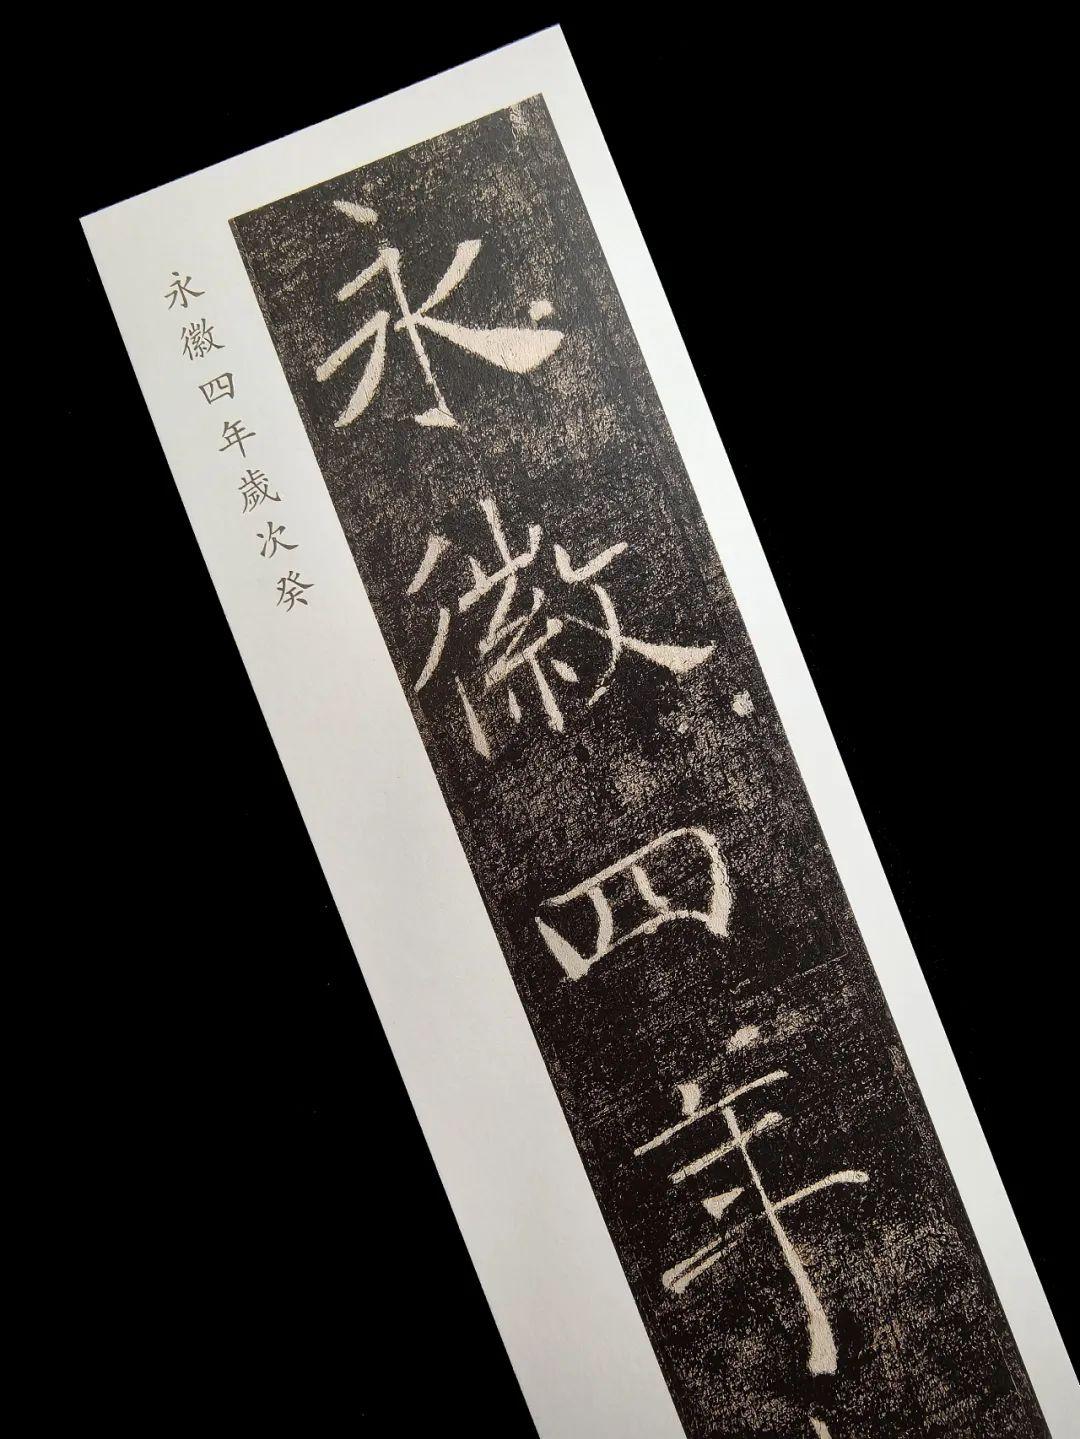 永徽四年
永徽四年歲次癸